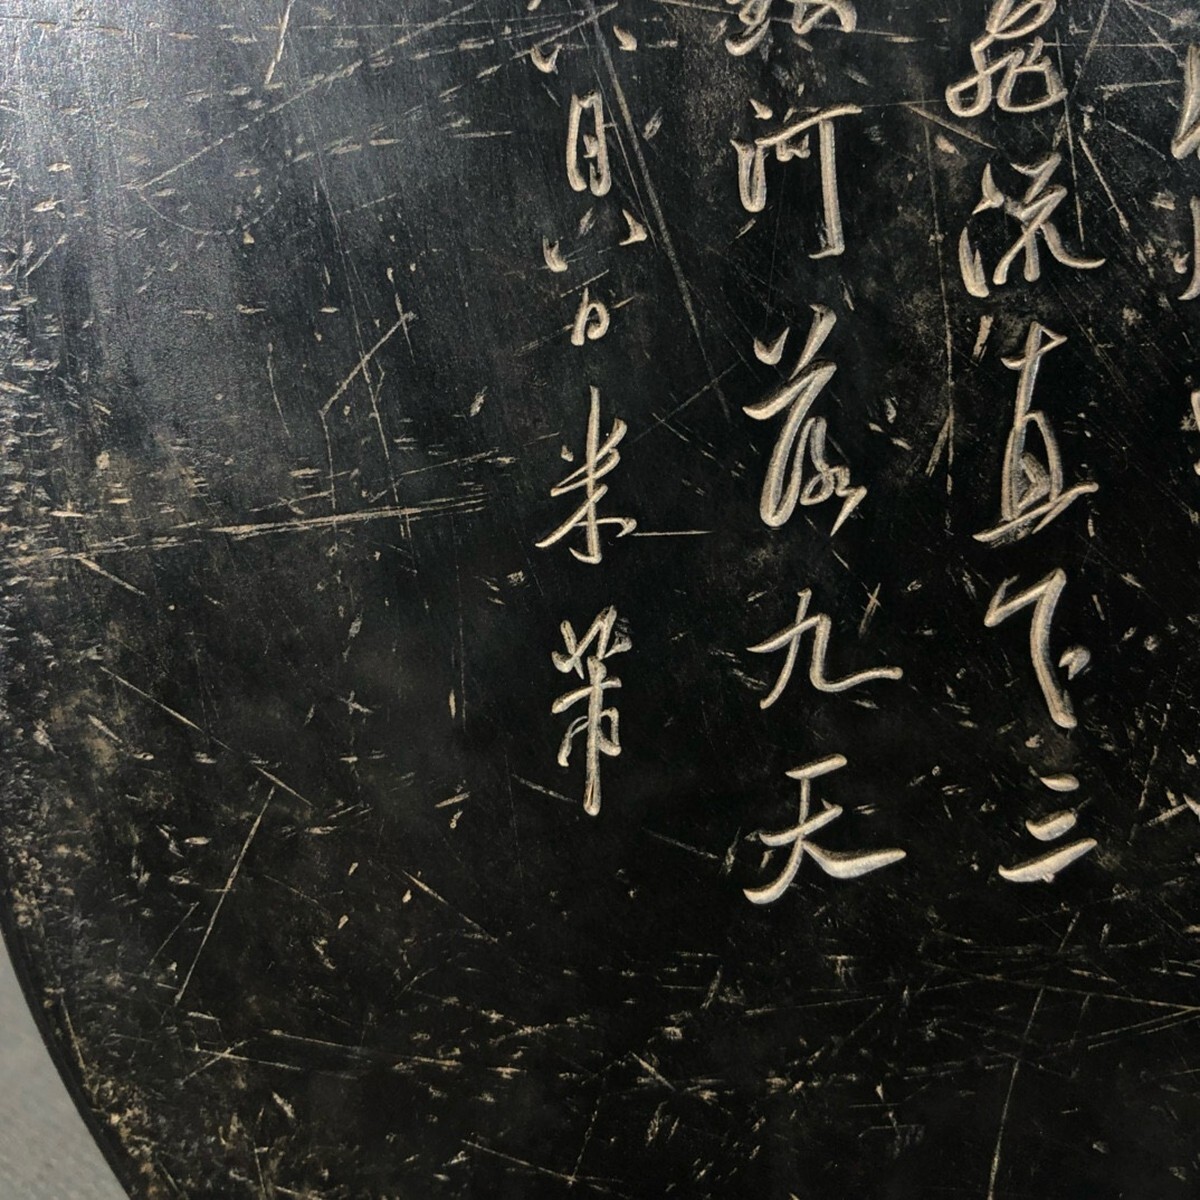 飛流直下三
銀河落九天
六月八日米芾